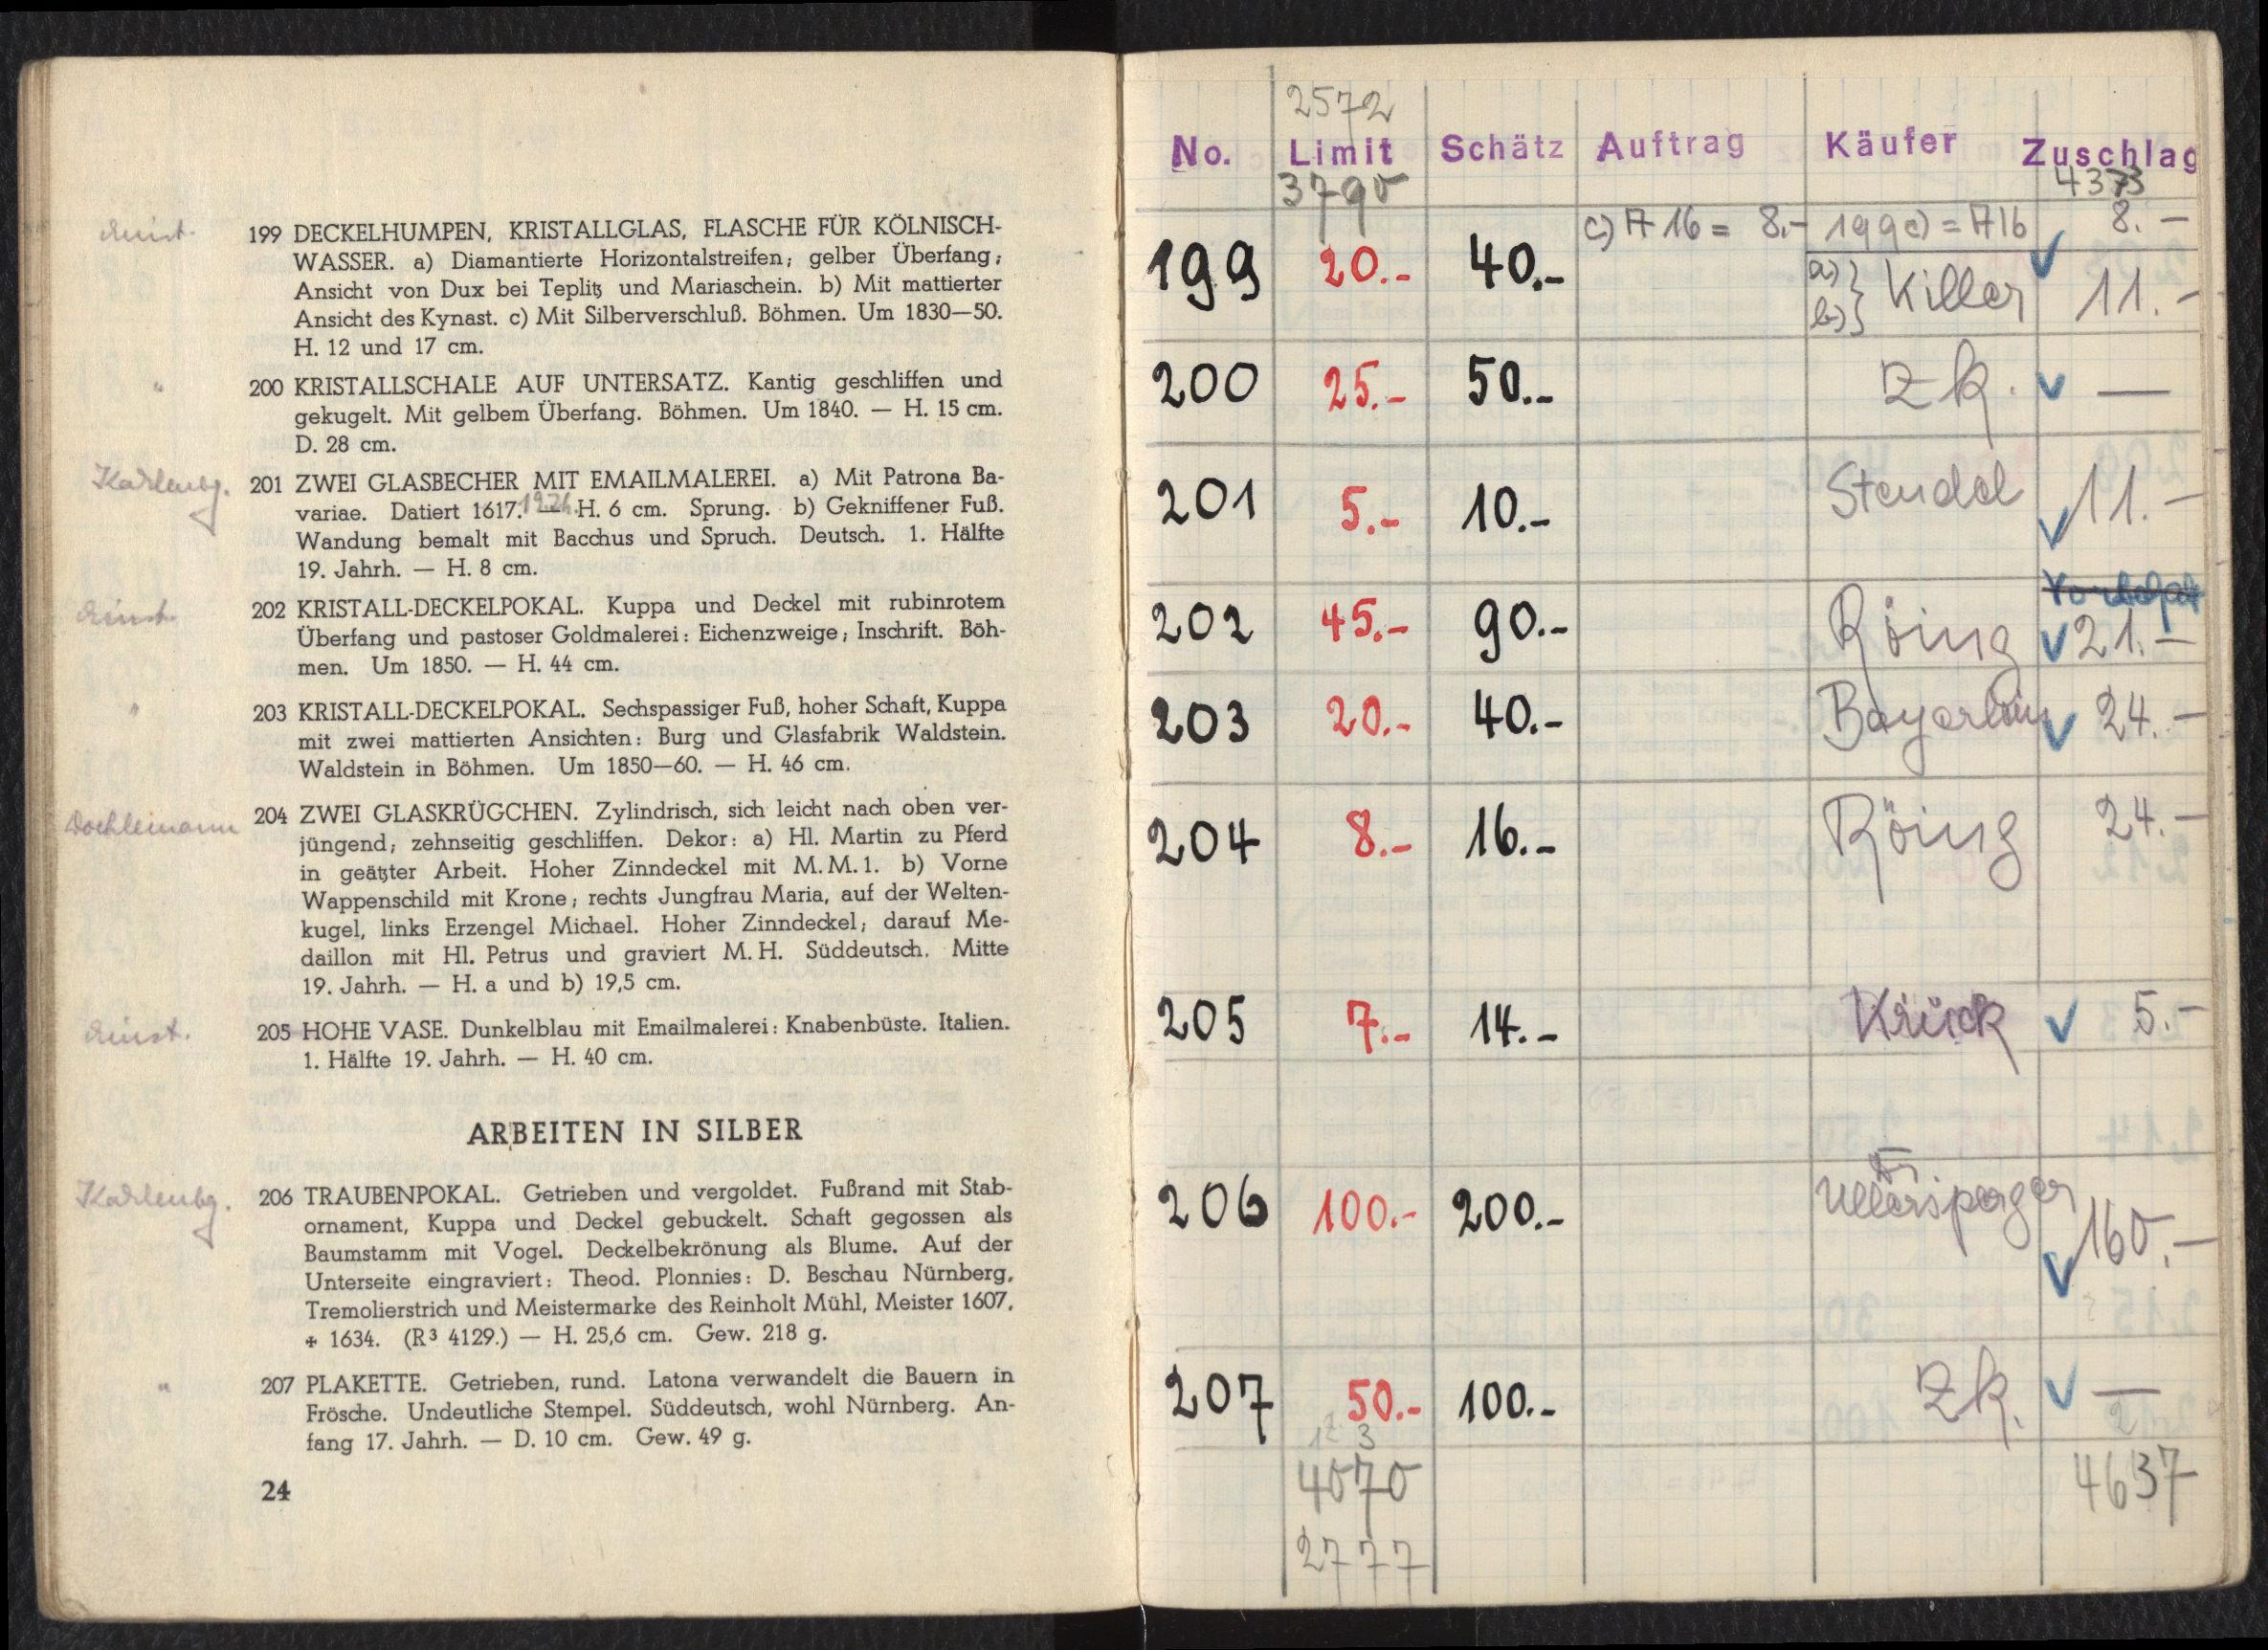 199 DECKELHUMPEN, KRISTALLGLAS, FLASCHE FÜR KÖLNISCH-
WASSER. a) Diamantierte Horizontalstreifen; gelber Überfang;
Ansicht von Dux bei Teplitz und Mariaschein. b) Mit mattierter
Ansicht des Kynast. c) Mit Silberverschluß. Böhmen. Um 1830—50.
H. 12 und 17 cm.
"
200 KRISTALLSCHALE AUF UNTERSATZ. Kantig geschliffen und
gekugelt. Mit gelbem Überfang. Böhmen. Um 1840. — H. 15 cm.
D. 28 cm.
Karlenbg.
201 ZWEI GLASBECHER MIT EMAILMALEREI. a) Mit Patrona Ba-
variae. Datiert 1617. — H. 6 cm. Sprung. b) Gekniffener Fuß.
Wandung bemalt mit Bacchus und Spruch. Deutsch. 1. Hälfte
19. Jahrh. — H. 8 cm.
202 KRISTALL-DECKELPOKAL. Kuppa und Deckel mit rubinrotem
Überfang und pastoser Goldmalerei: Eichenzweige; Inschrift. Böh-
men. Um 1850. — H. 44 cm.
"
203 KRISTALL-DECKELPOKAL. Sechspassiger Fuß, hoher Schaft, Kuppa
mit zwei mattierten Ansichten: Burg und Glasfabrik Waldstein.
Waldstein in Böhmen. Um 1850—60. — H. 46 cm.
Dochlemann
204 ZWEI GLASKRÜGCHEN. Zylindrisch, sich leicht nach oben ver-
jüngend; zehnseitig geschliffen. Dekor: a) Hl. Martin zu Pferd
in geätzter Arbeit. Hoher Zinndeckel mit M. M. 1. b) Vorne
Wappenschild mit Krone; rechts Jungfrau Maria, auf der Welten-
kugel, links Erzengel Michael. Hoher Zinndeckel; darauf Me-
daillon mit Hl. Petrus und graviert M. H. Süddeutsch. Mitte
19. Jahrh. — H. a und b) 19,5 cm.
205 HOHE VASE. Dunkelblau mit Emailmalerei: Knabenbüste. Italien.
1. Hälfte 19. Jahrh. — H. 40 cm.
ARBEITEN IN SILBER
Karlenbg.
206 TRAUBENPOKAL. Getrieben und vergoldet. Fußrand mit Stab-
ornament, Kuppa und Deckel gebuckelt. Schaft gegossen als
Baumstamm mit Vogel. Deckelbekrönung als Blume. Auf der
Unterseite eingraviert: Theod. Plonnies: D. Beschau Nürnberg,
Tremolierstrich und Meistermarke des Reinholt Mühl, Meister 1607,
+ 1634. (R³ 4129.) — H. 25,6 cm. Gew. 218 g.
"
207 PLAKETTE. Getrieben, rund. Latona verwandelt die Bauern in
Frösche. Undeutliche Stempel. Süddeutsch, wohl Nürnberg. An-
fang 17. Jahrh. — D. 10 cm. Gew. 49 g.
24
2572
No. Limit Schätz Auftrag Käufer Zuschlag
3790 4373
c) A 16 = 8.- 199c) = A16 8.-
199 20.- 40.- a) b) Killer 11.-
200 25.- 50.- zk. —
201 5.- 10.- Stendel 11.-
202 45.- 90.- Röing 21.-
203 20.- 40.- Bayerlein 24.-
204 8.- 16.- Röing 24.-
205 7.- 14.- Krück 5.-
206 100.- 200.- Ullersperger 160.-
207 50.- 100.- zk. —
4070 4637
2777